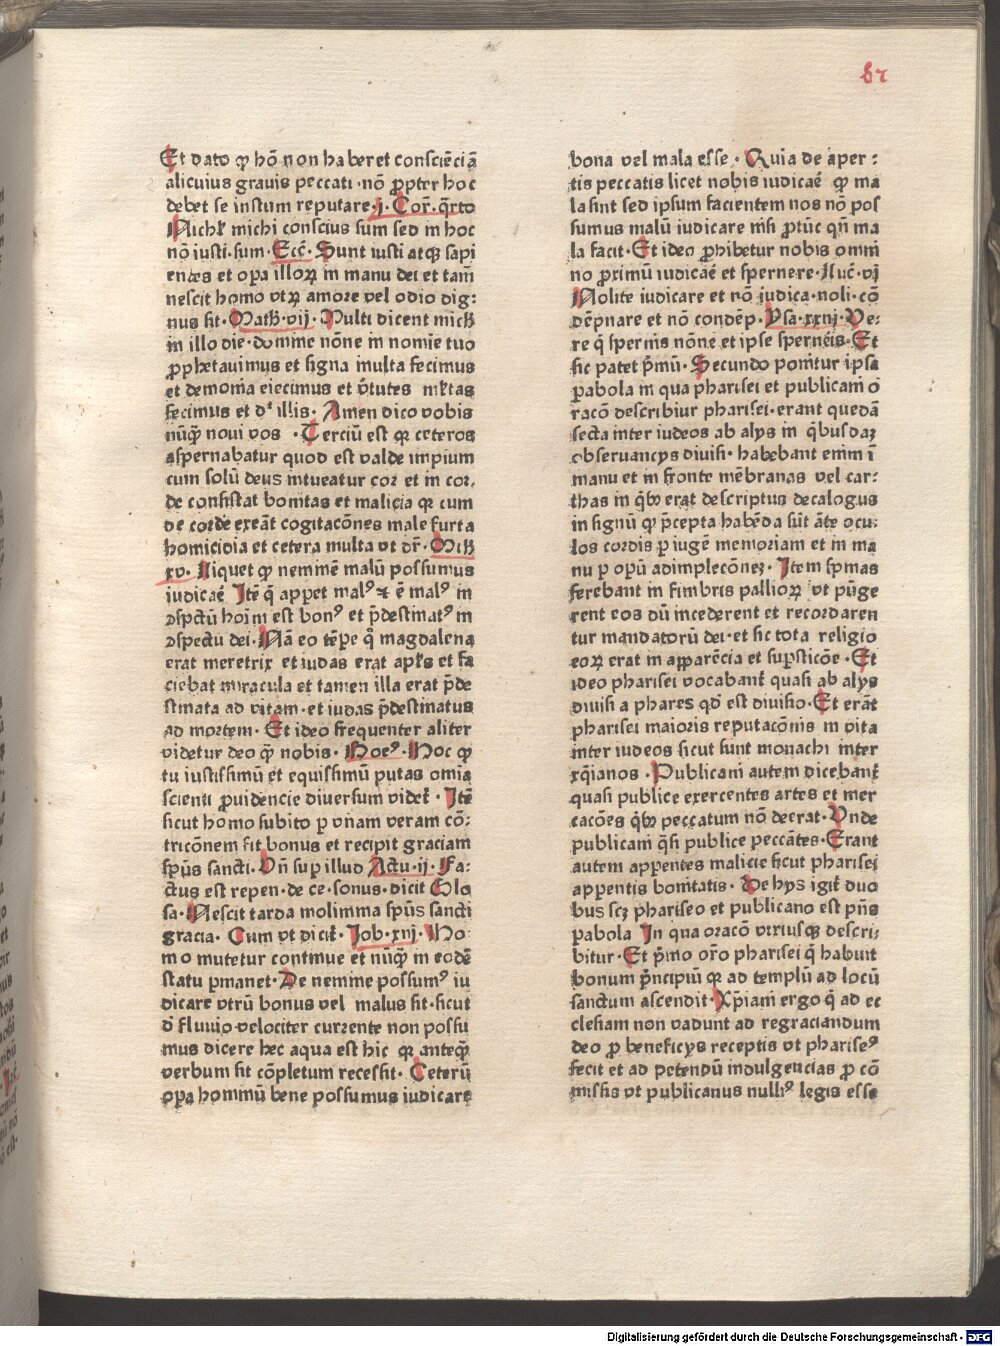 61
Et dato ꝙ hō non haberet consciēciā
alicuius grauis peccati·nō ꝓpter hoc
debet se iustum reputare·j·Cor̄·q̄rto
Nichl̓ michi conscius sum sed in hoc
nō iusti·sum·Ecc̄·Sunt iusti atqꝫ sapi
entes et oꝑa illoꝝ in manu dei et tam̄
nescit homo vtꝝ amore vel odio dig:
nus sit·Math̓·vij·Multi dicent mich̓
in illo die·domine nōne in nomie tuo
ꝓphetauimus et signa multa fecimus
et demonia eiecimus et v̓tutes ml̓tas
fecimus et d᷒ illis·Amen dico vobis
nūq̄ꝫ noui vos ·Terciū est qꝛ ceteros
aspernabatur quod est valde impium
cum solū deus intueatur cor et in cor.
de consistat bonitas et malicia qꝛ cum
de corde exeāt cogitacōnes male furta
homicidia et cetera multa vt dr̄·Mth̓
xv·Niquet ꝙ neminē malū possumus
iudicaē Itē q̄ apꝑet malꝰ ⁊ ē malꝰ in
ꝯspctū hoīm est bonꝰ et p̄destinatꝰ in
ꝯspectu dei·Nā eo tēpe q̄ magdalena
erat meretrix et iudas erat apl̓s et fa
ciebat miracula et tamen illa erat p̄de
stinata ad vitam·et iudas p̄destinatus
ad mortem·Et ideo frequenter aliter
videtur deo q̄ꝫ nobis·Boeꝰ·Hoc ꝙ
tu iustissimū et equissimū putas omīa
scienti ꝓuidencie diuersum videt̄·Itē
sicut homo subito ꝑ vnam veram cō:
tricōnem fit bonus et recipit graciam
sp̄us sancti·Vn̄ suꝑ illud Actu·ij·Fa:
ctus est repen·de ce·sonus·dicit Glo
sa·Nescit tarda molimina sp̄us sancti
gracia·Cum vt dicit̄·Job·xiij·Ho:
mo mutetur continue et nūq̄ꝫ in eodē
statu ꝑmanet·De nemine possumꝰ iu
dicare vtrū bonus vel malus sit·sicut
d̓ fluuio velociter currente non possu
mus dicere hec aqua est hic qꝛ anteq̄ꝫ
verbum sit cōpletum recessit·Ceterū
oꝑa hominū bene possumus iudicare
bona vel mala esse·Quia de aper:
tis peccatis licet nobis iudicaē ꝙ ma
la sint sed ipsum facientem nos nō pos
sumus malū iudicare nisi ꝓtūc qn̄ ma
la facit·Et ideo ꝓhibetur nobis omni
no proximū iudicaē et spernere·Luc̄·vj
Nolite iudicare et nō judica·noli·cō
dēpnare et nō condēp·Ysa·xxxiij·Ve:
re q̄ spernis nōne et ipse sperneīs·Et
sic patet p̄mū·Secundo ponitur ipsa
ꝑabola in qua pharisei et publicani o
racō describiur pharisei·erant quedā
secta inter iudeos ab alijs in q̄busdaꝫ
obseruancijs diuisi·habebant enim ī
manu et in fronte mēbranas vel car:
thas in q̄bꝫ erat descriptus decalogus
in signū ꝙ p̄cepta habēda sūt āte ocu:
los cordis ꝑ iugē memoriam et in ma
nu ꝑ opū adimplecōneꝫ·Item spinas
ferebant in fimbris pallioꝝ vt pūge
rent eos dū incederent et recordaren
tur mandatorū dei·et sic tota religio
eoꝝ erat in apparēcia et suꝑsticōe·Et
ideo pharisei vocabant̄ quasi ab alijs
diuisi a phares qd̓ est diuisio·Et erāt
pharisei maioris reputacōnis in vita
inter iudeos sicut sunt monachi inter
xp̄ianos·Publicani autem dicebant̄
quasi publice exercentes artes et mer
cacōes q̄bꝫ peccatum nō deerat·Vnde
publicani q̄si publice peccātes·Erant
autem apꝑentes malicie sicut pharisei
apꝑentis bonitatis·De hijs igit̄ duo
bus scꝫ phariseo et publicano est pn̄s
ꝑabola In qua oracō vtriusqꝫ descri:
bitur·Et p̄mo or̄o pharisei q̄ habuit
bonum p̄ncipiū qꝛ ad templū ad locū
sanctum ascendit·Xp̄iani ergo q̄ ad ec
clesiam non vadunt ad regraciandum
deo ꝓ beneficijs receptis vt phariseꝰ
fecit et ad petendū indulgencias ꝓ cō
missis vt publicanus nulliꝰ legis esse
Digitalisierung gefördert durch die Deutsche Forschungsgemeinschaft - DFG